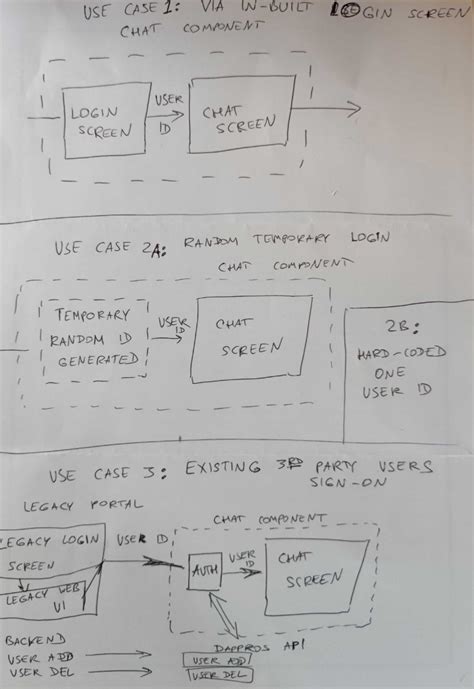 USE CASE 1: VIA IN-BUILT LOGIN SCREEN
CHAT COMPONENT
LOGIN
SCREEN
USER
ID
CHAT
SCREEN
USE CASE 2A: RANDOM TEMPORARY LOGIN
CHAT COMPONENT
TEMPORARY
RANDOM ID
GENERATED
USER
ID
CHAT
SCREEN
2B:
HARD-CODED
ONE
USER ID
USE CASE 3: EXISTING 3RD PARTY USERS
SIGN-ON
LEGACY PORTAL
CHAT COMPONENT
LEGACY LOGIN
SCREEN
USER ID
LEGACY WEB
UI
AUTH
USER
ID
CHAT
SCREEN
BACKEND
USER ADD
USER DEL
DAPPROS API
USER ADD
USER DEL